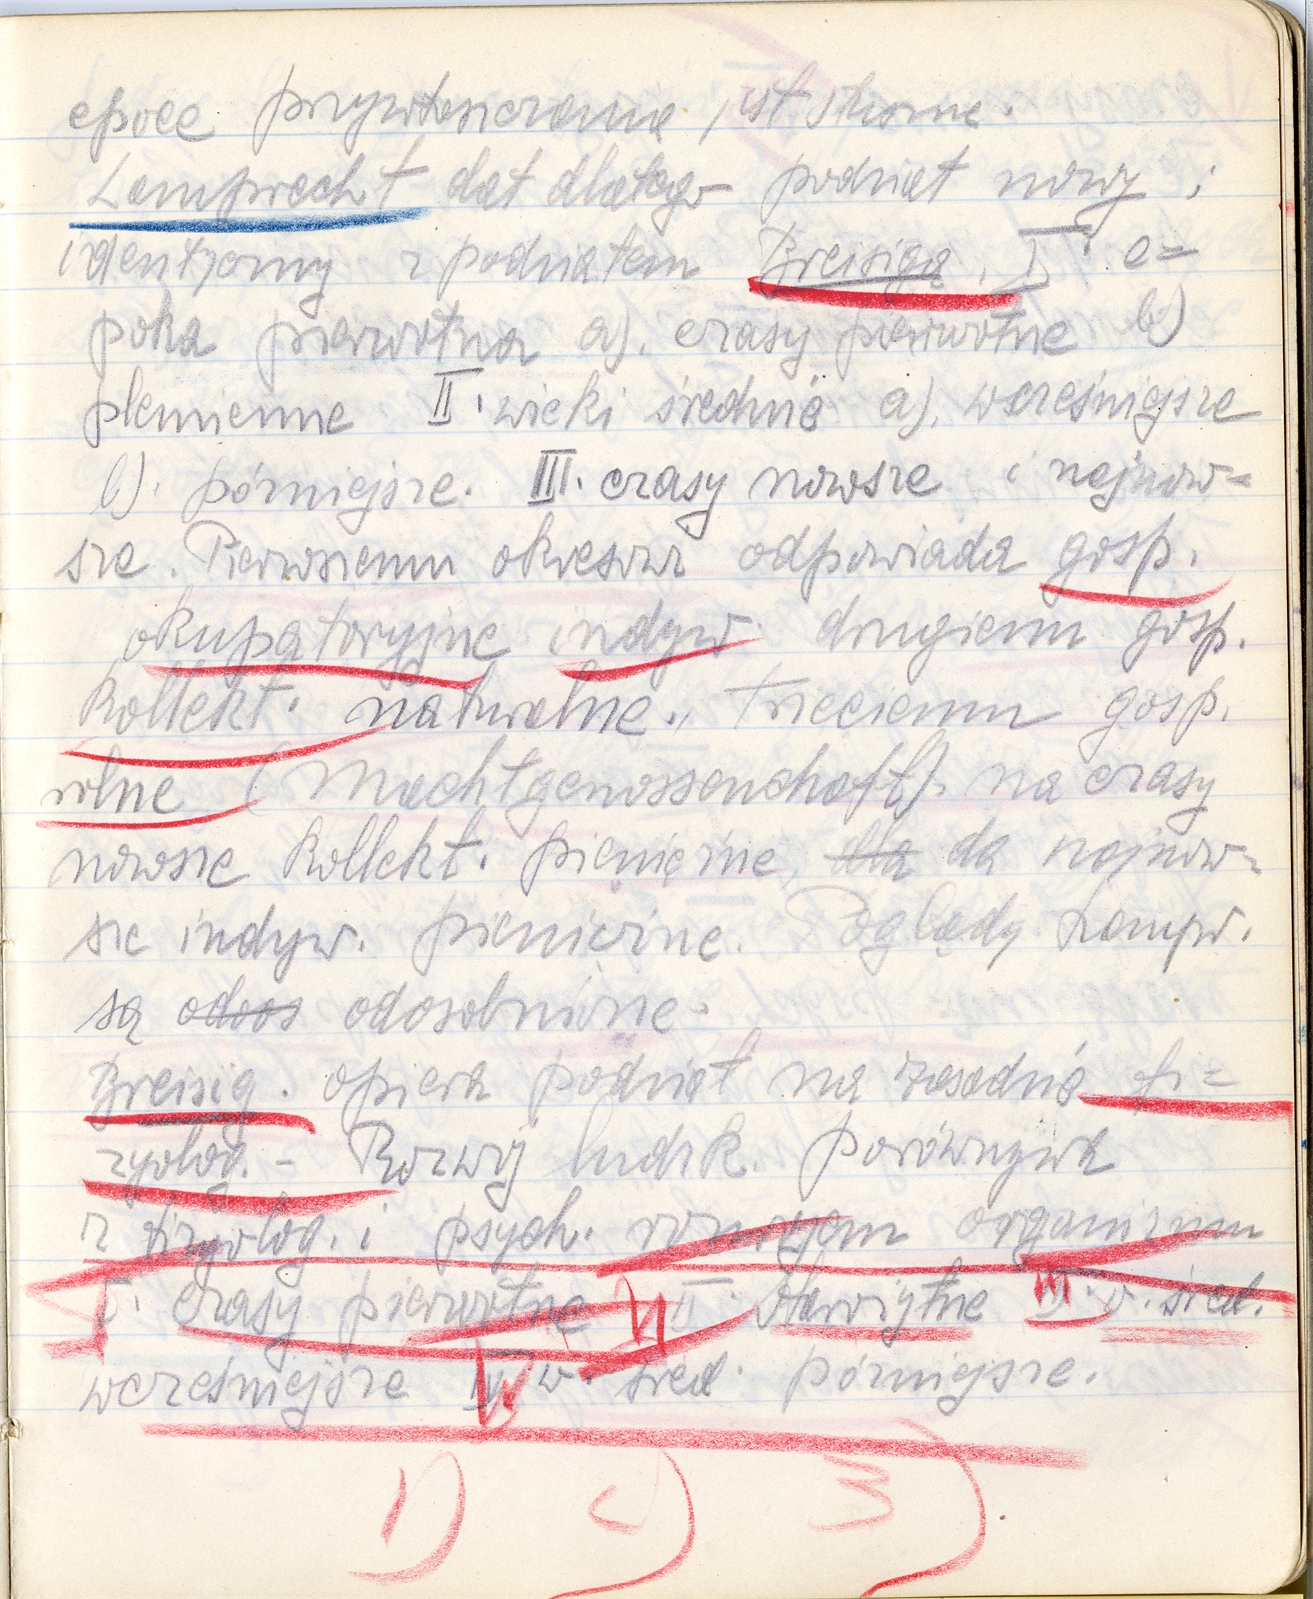 epoce przywłaszczania jest słuszne.
Lamprecht dał dlatego podział nowy i
identyczny z podziałem Breisiga. I. e=
poka pierwotna a). czasy pierwotne b)
plemienne II. wieki średnie a). wcześniejsze
b). późniejsze. III. czasy nowsze i najnow=
sze. Pierwszemu okresowi odpowiada gosp.
okupatoryjne indyw. drugiemu gosp.
kollekt. naturalne., trzeciemu gosp.
wolne (Machtgenossenschaft). na czasy
nowsze kollekt. pieniężne, dla da najnow=
sze indyw. pieniężne. Poglądy Lampr.
są odoos odosobnione.
Breisig. opiera podział na zasadzie fi=
zyolog. - Rozwój ludzk. porównywa
z fizyolog. i psych. rozwojem organizmu
I. czasy pierwotne II. starożytne III. w. śred.
wcześniejsze IV w. śred. późniejsze.
1) 2) 3)